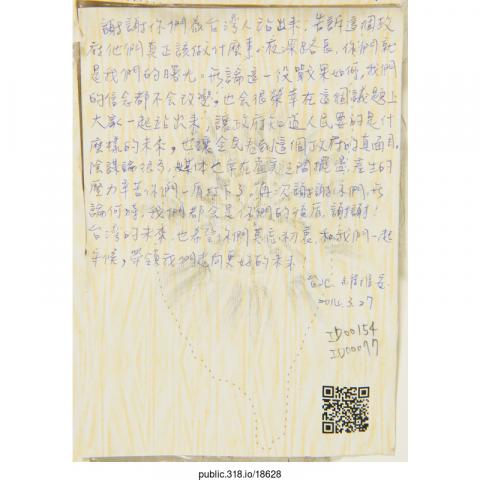 謝謝你們為台灣人站出來，告訴這個政
府他們真正該做什麼事，夜深路長，你們就
是我們的曙光。無論這一役戰果如何，我們
的信念都不會改變，也會很榮幸在這個議題上
大家一起站出來，讓政府知道人民要的是什
麼樣的未來，也讓全民看到這個政府的真面目。
陰謀論很多，媒體也常在虛實之間擺盪，產生的
壓力辛苦你們一肩扛下了，再次謝謝你們，無
論何時，我們都會是你們的後盾，謝謝！
台灣的未來，也希望你們莫忘初衷，和我們一起
守候，帶領我們走向更好的未來！
台北
2014.3.27
ID00154
ID00077
public.318.io/18628